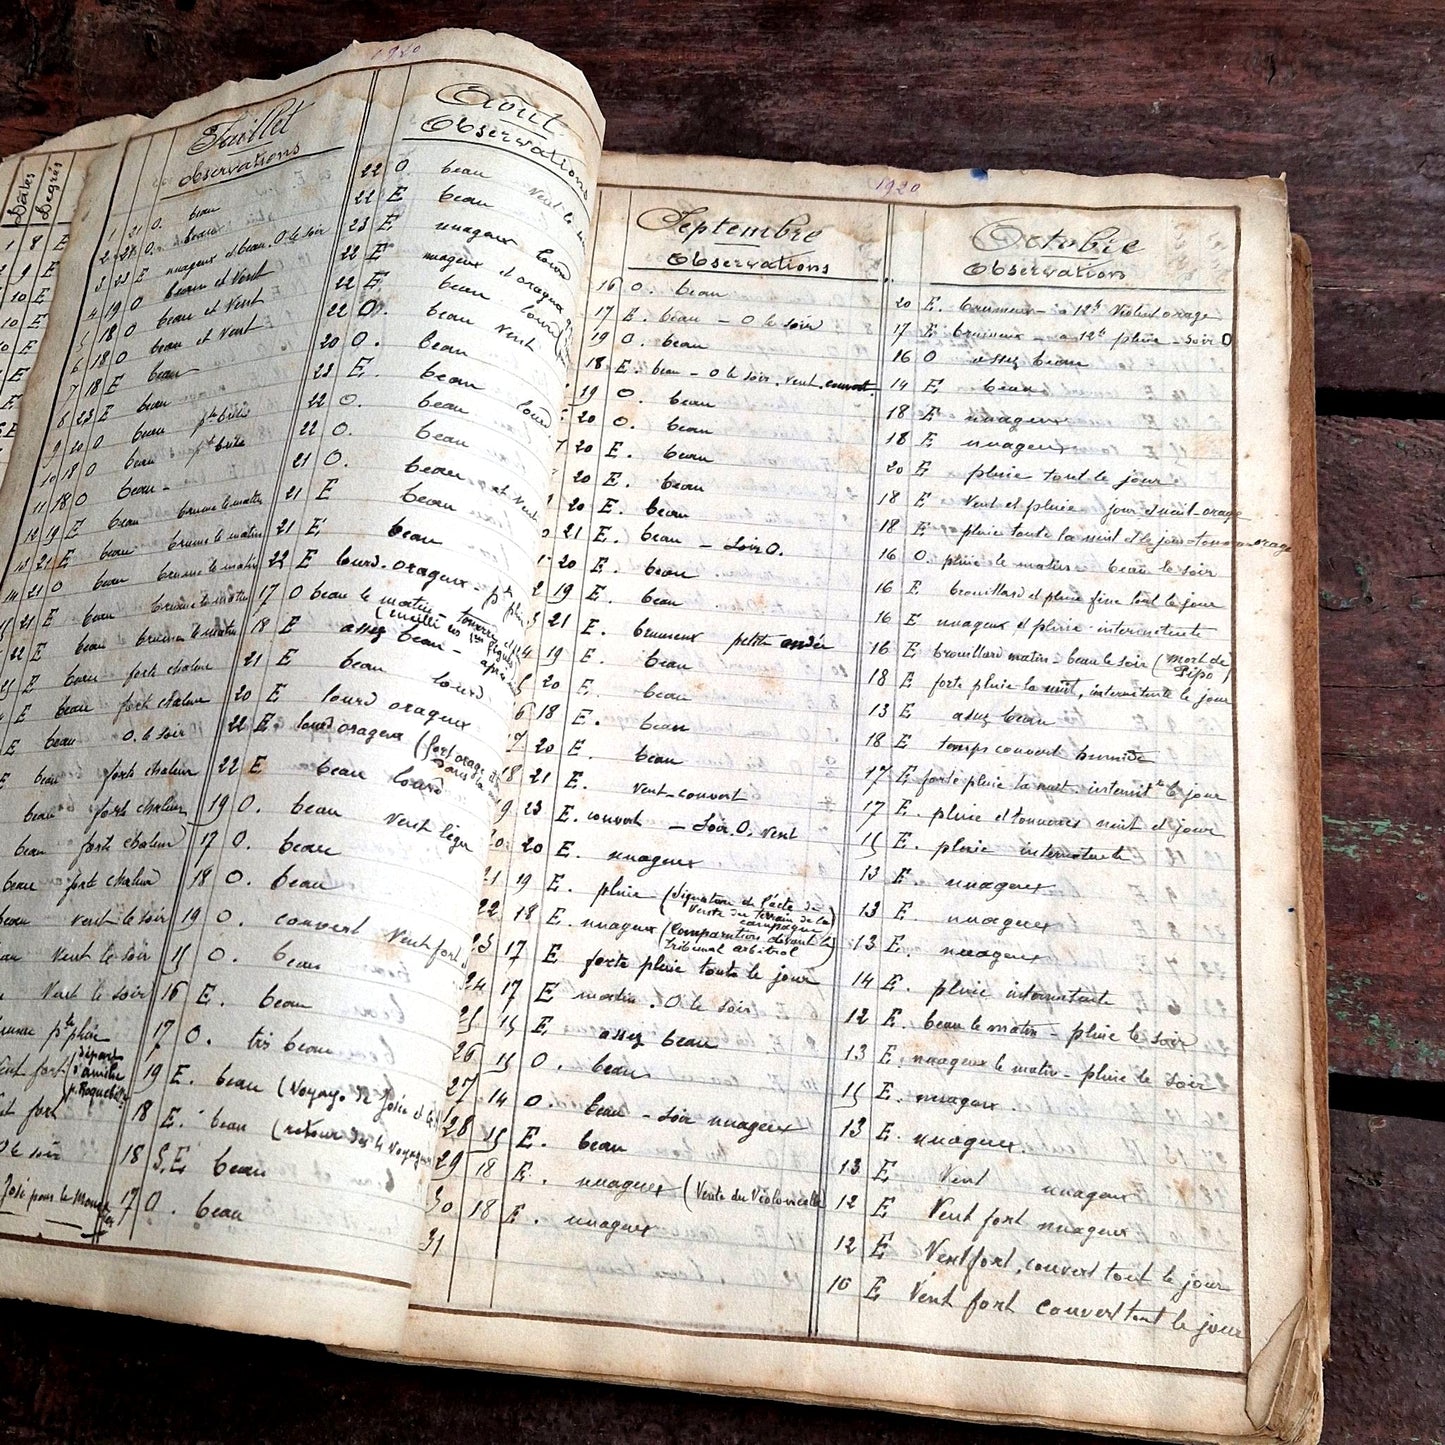 Dates
Degrés
1 8 E
9 E
10 E
10 E
1920
Juillet
Observations
1 21 O. beau
2 21 O. beau
3 23 E nuageux et beau. O le soir
4 19 O beau et vent
5 18 O beau et vent
6 18 O beau et vent
7 18 E beau
8 23 E beau
9 20 O beau pte brise
10 18 O beau pte brise
11 18 O beau -
12 19 E beau brume le matin
13 21 E beau brume le matin
14 21 O beau brume le matin
15 21 E beau brume le matin
22 E beau - brume le matin
21 E beau forte chaleur
E beau fort chaleur
E beau O. le soir
E beau forte chaleur
beau forte chaleur
beau forte chaleur
beau forte chaleur
beau vent le soir
vent le soir
Vent le soir
brume pte pluie
vent fort (départ d'Amélie p. Roque
fort
O le soir
José pour le
Août
Observations
22 O. beau vent le
22 E beau
23 E nuageux lourd
22 E nuageux et orageux
22 E beau lourd
22 O. beau vent
20 O. beau
23 E. beau
22 O. beau lourd
22 O. beau
21 O. beau
21 E beau
21 E beau
22 E lourd. orageux - pte
17 O beau le matin - tonnerre et
18 E assez beau - après
21 E beau lourd
20 E lourd orageux
22 E lourd orageux (fort orage
22 E beau lourd
19 O. beau
17 O. beau vent léger
18 O. beau
19 O. couvert vent fort
15 O. beau
16 E. beau
17 O. très beau
19 E. beau (Voyage de José et
18 E. beau (retour des voyageurs
18 S.E beau
17 O. beau
1920
Septembre
Observations
16 O. beau
17 E. beau - O le soir
19 O. beau
18 E. beau - O le soir. vent. couvert.
19 O. beau
20 O. beau
20 E. beau
20 E. beau
20 E. beau
21 E. beau - soir O.
20 E. beau
19 E. beau
21 E. brumeux petite ondée
19 E. beau
20 E. beau
6 18 E. beau
7 20 E. beau
18 21 E. vent - couvert
9 23 E. couvert - soir. O. vent
20 20 E. nuageux
21 19 E. pluie - (signature de l'acte de
vente du terrain de la
campagne
22 18 E. nuageux (Comparution devant le
tribunal arbitral
23 17 E forte pluie toute le jour
24 17 E matin. O le soir
25 15 E assez beau
26 15 O. beau
27 14 O. beau - soir nuageux
28 15 E. beau
29 18 E. nuageux (Vente du Violoncelle)
30 18 E. nuageux
31
Octobre
Observations
20 E. brumeux - à 12h violent orage
17 E brumeux - à 12h pluie - soir O
16 O assez beau
14 E beau
18 E nuageux
18 E nuageux
20 E pluie tout le jour
18 E vent et pluie jour et nuit - orage
18 E pluie toute la nuit et le jour - tonnerre orage
16 O. pluie le matin - beau le soir
16 E brouillard et pluie fine tout le jour
16 E nuageux et pluie intermitente
16 E brouillard matin - beau le soir (Mort de
Pipo)
18 E forte pluie la nuit, intermitente le jour
13 E assez beau
18 E temps couvert humide
17 E forte pluie la nuit. intermitte le jour
17 E. pluie et tonnerres nuit et jour
15 E. pluie intermitente
13 E. nuageux
13 E. nuageux
13 E. nuageux
14 E. pluie intermitente
12 E. beau le matin - pluie le soir
13 E. nuageux le matin - pluie le soir
15 E. nuageux.
13 E. nuageux
13 E Vent nuageux
12 E Vent fort nuageux
12 E Vent fort, couvert tout le jour
10 E Vent fort couvert tout le jour